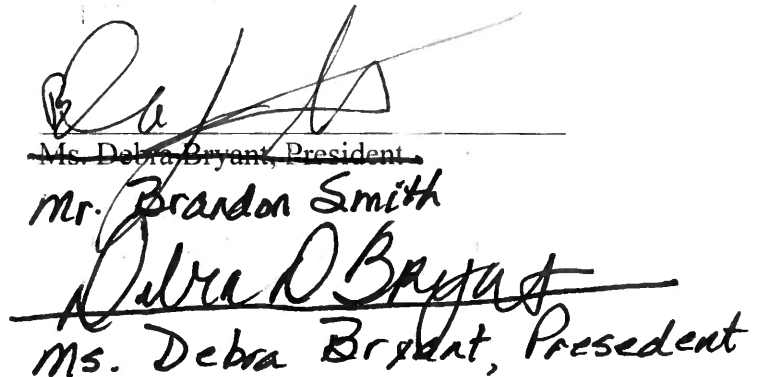 Ms. Debra Bryant, President
Mr. Brandon Smith
Debra D Bryant
Ms. Debra Bryant, Presedent